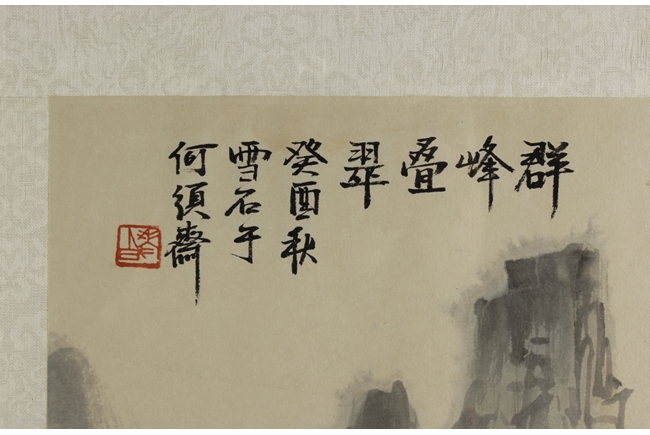 群峰叠翠
癸酉秋
雪石于
何须斋